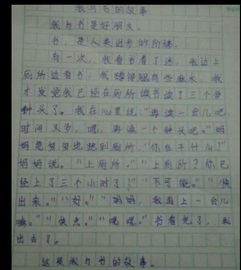 我与书的故事
我与书是好朋友。
书，是人类进步的阶梯。
有一次，我看书看了迷，我边上
厕所边看书，我蹲得腿都麻木，我
才发觉我已经在厕所读书读了三个
种头了。我在心里说："再读一会儿吧，
时间又多，嗯，再读一个钟头吧。"
妈是匆匆地跑到厕所，"你在干什么？"
妈妈说。"上厕所，""上厕所？你已
经上了三个小时了！""不可能。""快
出来。""好。""妈妈，我再上一会儿
嘛。""快点。""嗯嗯。"书看完了，我
出去了。
这是我与书的故事。